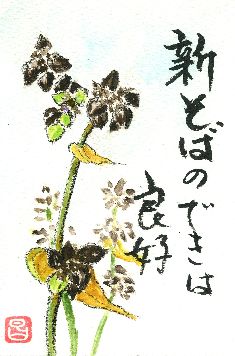 新そばのできは
良好
昌